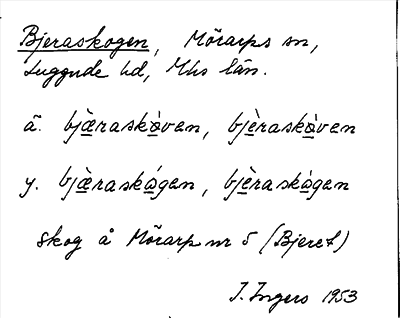 Bjeraskogen, Mörarps sn,
Luggude hd, Mhs län.
ä. bjæ̀raskå̀ven, bjèraskå̀ven
y. bjæ̀raskǻgen, bjèraskǻgen
skog å Mörarp nr 5 (Bjeret)
J. Ingers 1953